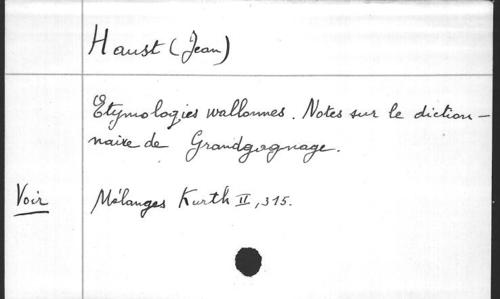 Haust (Jean)
Etymologies wallonnes. Notes sur le diction-
naire de Grandgagnage.
Voir Mélanges Kurth II, 315.